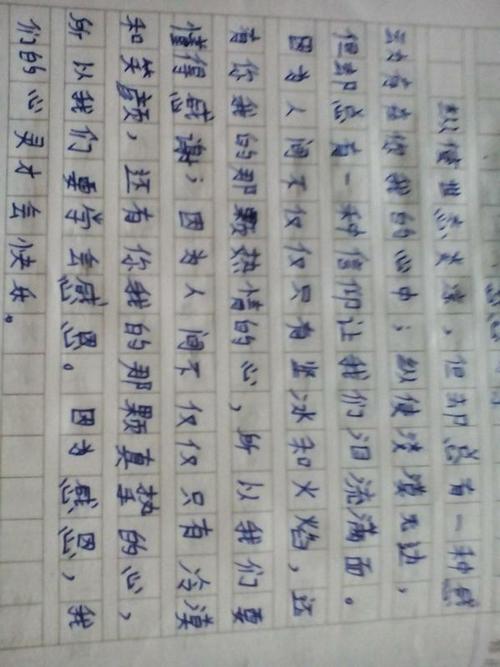 纵使世态炎凉,但却总有一种感
动存在你我的心中;纵使无边,
但却总有一种信仰让我们泪流满面。
因为人间不仅仅只有坚冰和火焰,还
有你我的那颗热情的心,所以我们要
懂得感谢;因为人间不仅仅只有冷漠
和笑颜,还有你我的那颗真挚的心,
所以我们要学会感恩。因为感恩,我
们的心灵才会快乐。